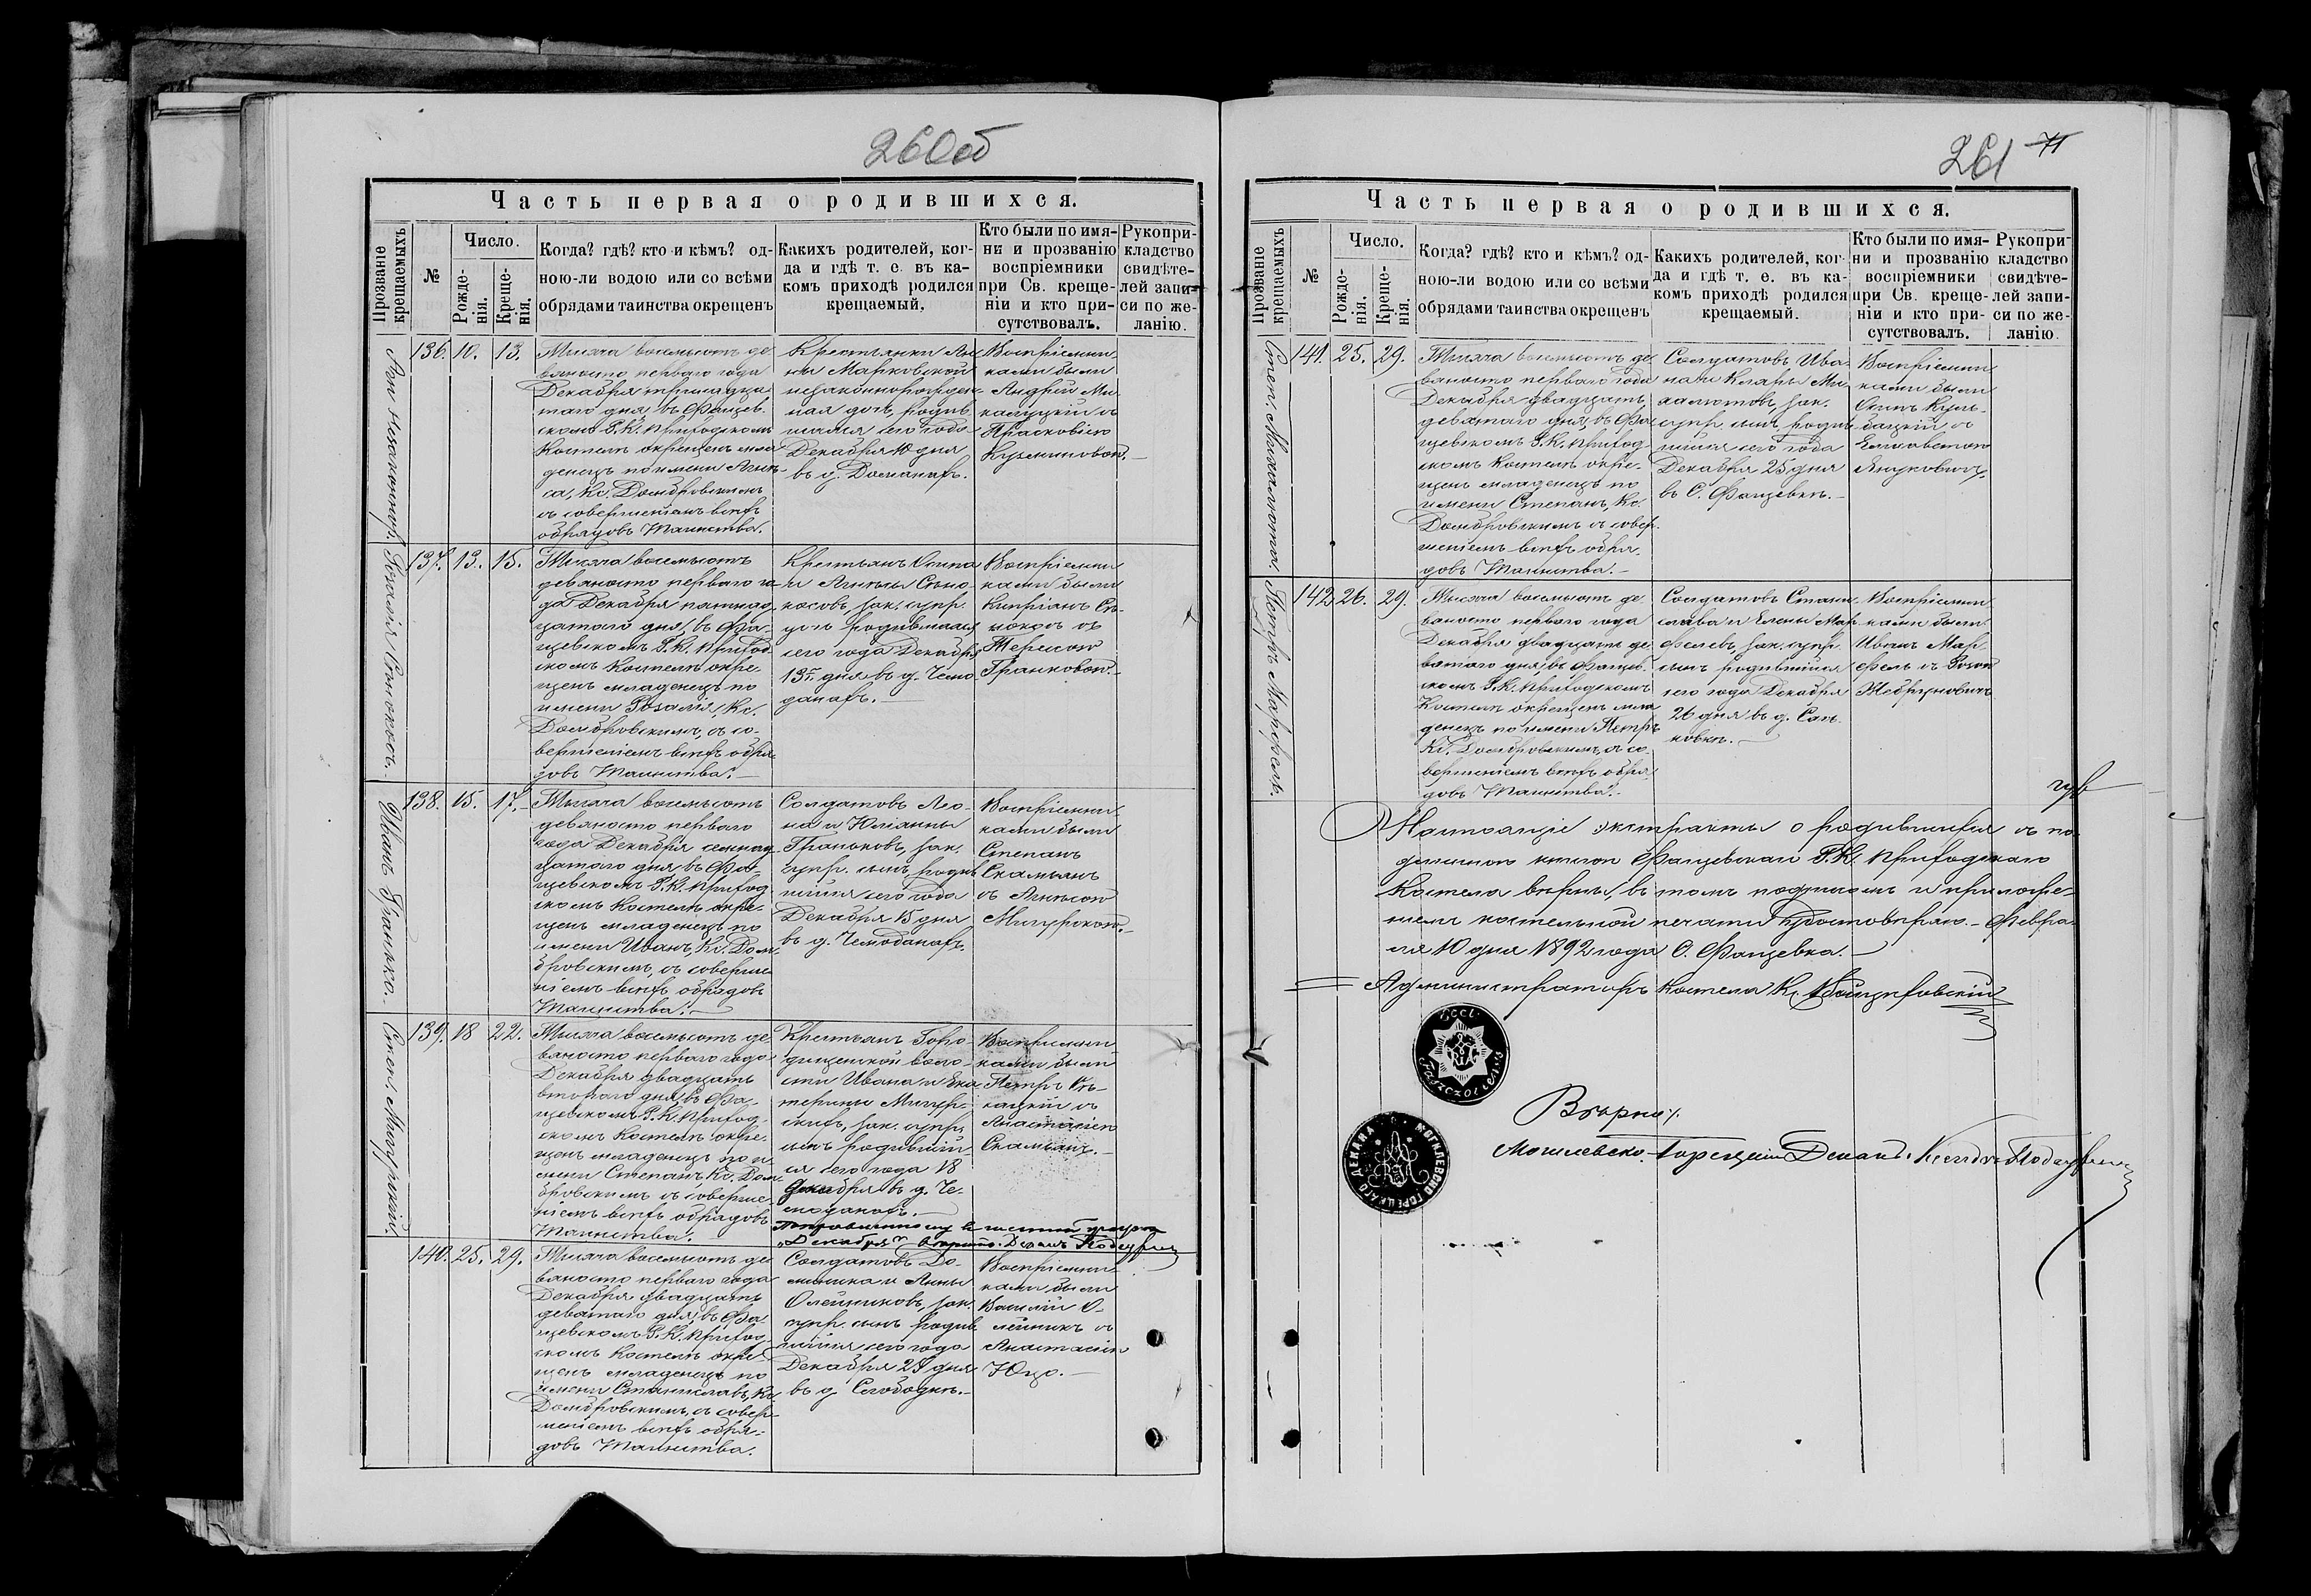 260об
Часть первая о родившихся.
Прозваніе крещаемыхъ
№
Число.
Рожде-
нія.
Креще-
нія.
Когда? гдѣ? кто и кѣмъ? од-
ною-ли водою или со всѣми
обрядами таинства окрещенъ
Какихъ родителей, ког-
да и гдѣ т. е. въ ка-
комъ приходѣ родился
крещаемый.
Кто были по имя-
ни и прозванію
воспріемники
при Св. креще-
ніи и кто при-
сутствовалъ.
Рукопри-
кладство
свидѣте-
лей запи-
си по же-
ланію.
136. 10. 13.
Тысяча восемьсотъ де-
вяносто перваго года
Декабря тринадца-
таго дня, въ Фащев-
скомъ Р. К. Приходскомъ
Костелѣ окрещенъ мла-
денецъ по имени Агне-
са, Кс. Домбровскимъ
съ совершеніемъ всѣхъ
обрядовъ Таинства.
Крестьянки Ан-
ны Марковской
незаконнорожден-
ная дочь, родив-
шаяся сего года
Декабря 10 дня
въ д. Доманахъ.
Воспріемни-
ками были
Андрей Ми-
калуцкій съ
Прасковіею
Кузьминовою.
Розалія Сѣнокосъ.
137. 13. 15.
Тысяча восемьсотъ
девяносто перваго го-
да Декабря пятнад-
цатаго дня, въ Фа-
щевскомъ Р. К. Приход-
скомъ Костелѣ окре-
щенъ младенецъ по
имени Розалія, Кс.
Домбровскимъ, съ со-
вершеніемъ всѣхъ обря-
довъ Таинства.
Крестьянъ Осипа
и Агнесы Сѣно-
косовъ, зак. супр.
дочь родившаяся
сего года Декабря
13 дня въ д. Чемо-
данахъ.
Воспріемни-
ками были
Кипріанъ Сѣ-
нокосъ съ
Терезою
Гранковою.
Иванъ Гранько.
138. 15. 17.
Тысяча восемьсотъ
девяносто перваго
года Декабря семнад-
цатаго дня въ Фа-
щевскомъ Р. К. Приход-
скомъ Костелѣ окре-
щенъ младенецъ по
имени Иванъ, Кс. Дом-
бровскимъ, съ соверше-
ніемъ всѣхъ обрядовъ
Таинства.
Солдатовъ Лео-
на и Юліанны
Граньковъ, зак.
супр. сынъ, родив-
шійся сего года
Декабря 15 дня
въ д. Чемоданахъ.
Воспріемни-
ками были
Степанъ
Скамьянъ
съ Агнесою
Мигурскою.
Степ. Мигурскій.
139. 18 22.
Тысяча восемьсотъ де-
вяносто перваго года
Декабря двадцать
втораго дня, въ Фа-
щевскомъ Р. К. Приход-
скомъ Костелѣ окре-
щенъ младенецъ по и-
мени Степанъ, Кс. Дом-
бровскимъ съ соверше-
ніемъ всѣхъ обрядовъ
Таинства.
Крестьянъ Горо-
дищенской воло-
сти Ивана и Ека-
терины Мигур-
скихъ, зак. супр.
сынъ родившій-
ся сего года 18
Декабря въ д. Че-
моданахъ.
Воспріемни-
ками были
Петръ
съ
Анастасіею
140. 25. 29.
Тысяча восемьсотъ де-
вяносто перваго года
Декабря двадцать
девятаго дня, въ Фа-
щевскомъ Р. К. Приход-
скомъ Костелѣ окре-
щенъ младенецъ по
имени Станиславъ, Кс.
Домбровскимъ, съ совер-
шеніемъ всѣхъ обря-
довъ Таинства.
"Декабря"
Солдатовъ До-
миника и Анны
Олейниковъ, зак.
супр. сынъ родив-
шійся сего года
Декабря 25 дня
въ д. Слободкѣ.
Воспріемни-
ками были
Василій О-
лейникъ съ
Анастасіею
Юцо.
261 71
Часть первая о родившихся.
Прозваніе крещаемыхъ
№
Число.
Рожде-
нія.
Креще-
нія.
Когда? гдѣ? кто и кѣмъ? од-
ною-ли водою или со всѣми
обрядами таинства окрещенъ
Какихъ родителей, ког-
да и гдѣ т. е. въ ка-
комъ приходѣ родился
крещаемый.
Кто были по имя-
ни и прозванію
воспріемники
при Св. креще-
ніи и кто при-
сутствовалъ.
Рукопри-
кладство
свидѣте-
лей запи-
си по же-
ланію.
141. 25. 29.
Тысяча восемьсотъ де-
вяносто перваго года
Декабря двадцать
девятаго дня, въ Фа-
щевскомъ Р. К. Приход-
скомъ Костелѣ окре-
щенъ младенецъ по
имени Степанъ, Кс.
Домбровскимъ съ совер-
шеніемъ всѣхъ обря-
довъ Таинства.
Солдатовъ Ива-
на и Клары Ми-
халютовъ, зак.
супр. сынъ, родив-
шійся сего года
Декабря 25 дня
въ С. Фащевкѣ.
Воспріемни-
ками были
Осипъ Куль-
бацкій съ
Елисаветою
Януковичъ.
Петръ Марфель.
142. 26. 29.
Тысяча восемьсотъ де-
вяносто перваго года
Декабря двадцать де-
вятаго дня, въ Фащев-
скомъ Р. К. Приходскомъ
Костелѣ окрещенъ мла-
денецъ по имени Петръ
Кс. Домбровскимъ, съ со-
вершеніемъ всѣхъ обря-
довъ Таинства.
Солдатовъ Стани-
слава и Елены Мар-
фелевъ, зак. супр.
сынъ родившійся
сего года Декабря
26 дня въ д. Сан-
ковкѣ.
Воспріемни-
ками были
Иванъ Мар-
фель съ Розою
Жебруновичъ
Настоящіе экстракты о родившихся съ по-
длинною книгою Фащевскаго Р. К. Приходскаго
Костела вѣрны, въ томъ подписомъ и приложе-
ніемъ костельной печати удостовѣряю. Февра-
ля 10 дня 1892 года С. Фащевка.
Администраторъ Костела Кс.
Вѣрно:
Могилевско-Горецкій Деканъ, Ксендзъ
МОГИЛЕВСКО ГОРЕЦКАГО ДЕКАНА